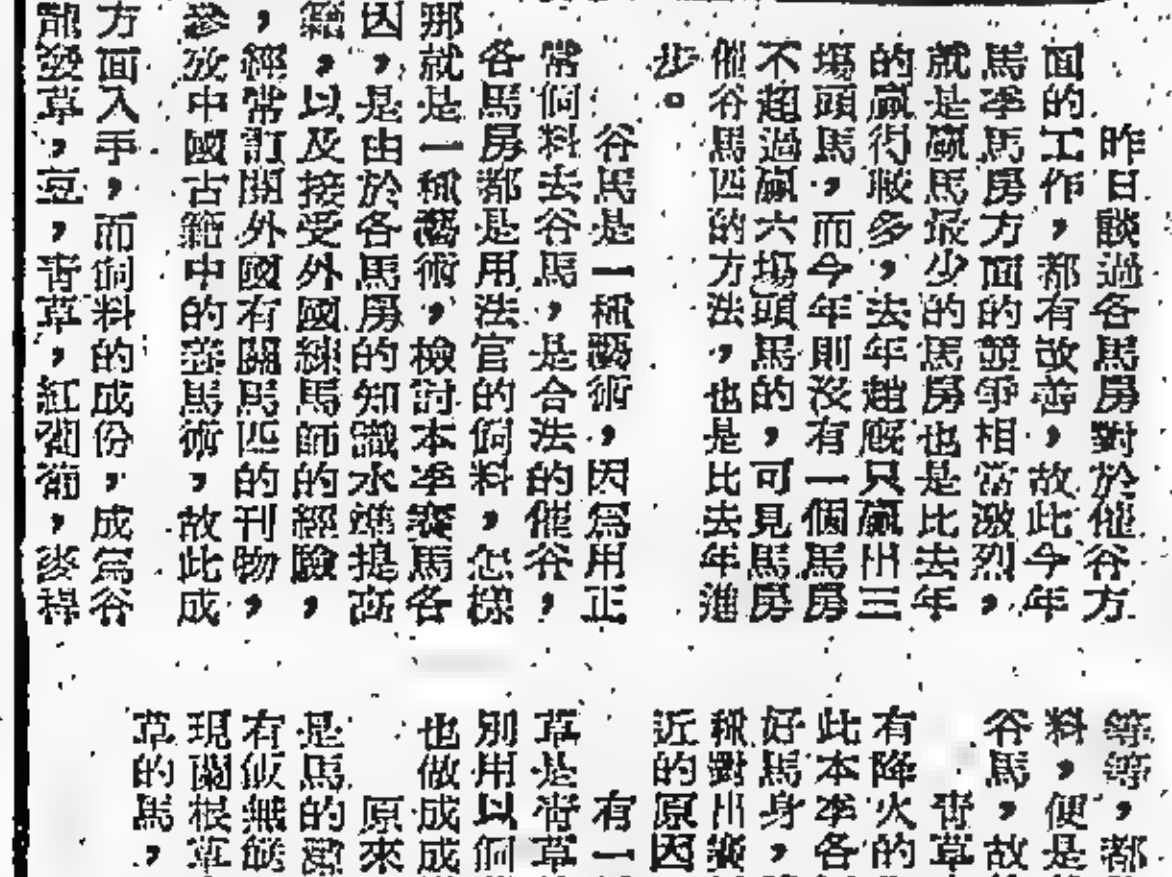 昨日談過各馬房對於催谷方
面的工作，都有改善，故此今年
馬季馬房方面的競爭相當激烈，
就是贏馬最少的馬房也是比去年
的贏得較多，去年趙廐只贏出三
塲頭馬，而今年則沒有一個馬房
不超過贏六塲頭馬的，可見馬房
催谷馬匹的方法，也是比去年進
步。
谷馬是一種藝術，因爲用正
常飼料去谷馬，是合法的催谷，
各馬房都是用法官的飼料，怎樣
那就是一種藝術，檢討本季賽馬各
因，是由於各馬房的知識水準提高
，以及接受外國練馬師的經驗，
，經常訂閱外國有關馬匹的刊物，
參攷中國古籍中的養馬術，故此成
方面入手，而飼料的成份，成爲谷
龍發草，豆，青草，紅蘿蔔，麥稈
等等，都
料，便是
谷馬，故
青草
有降火的
此本季各
好馬身，
種對出賽
近的原因
有一
草是青草
別用以飼
也做成成
原來
是馬的
有飯無餸
現蘭根草
草的馬，